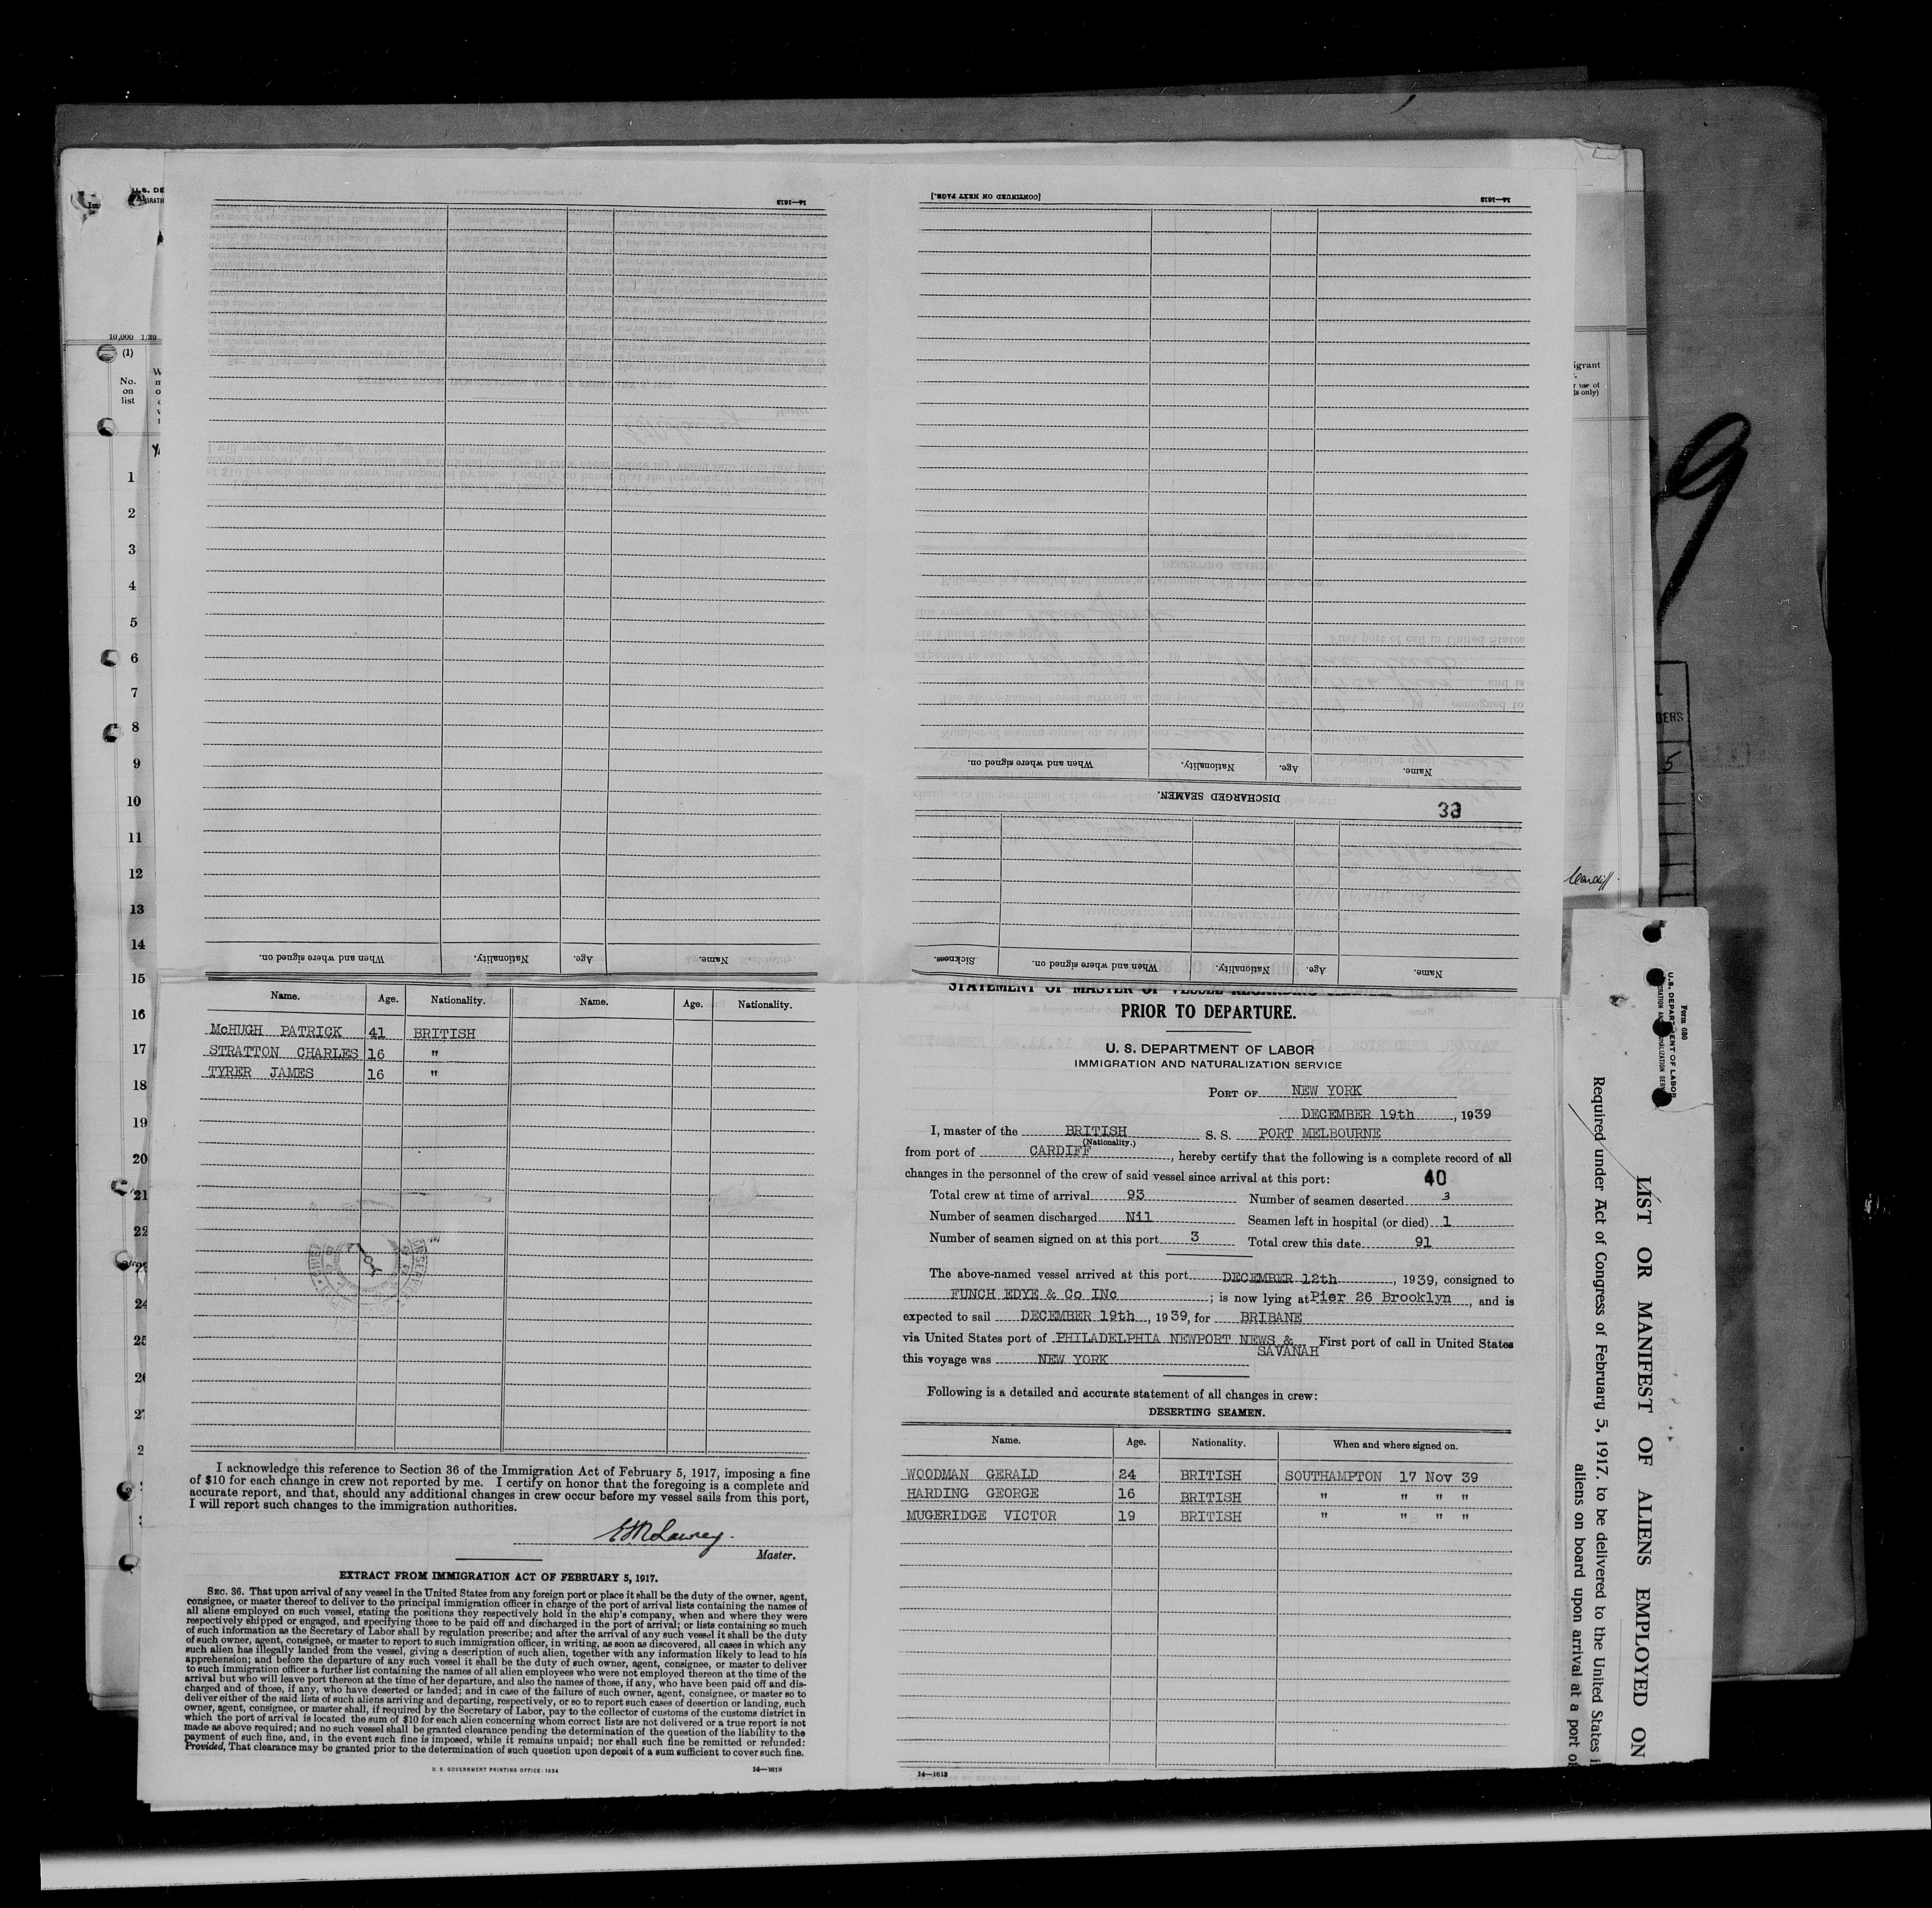 [CONTINUED ON NEXT PAGE.]
14—1613
14—1613
DISCHARGED SEAMEN.
Name.
Age.
Nationality.
When and where signed on.
33
Name.
Age.
Nationality.
When and where signed on.
Sickness.
Name.
Age.
Nationality.
When and where signed on.
U. S. DE
10,000 1/39
(1)
No.
on
list
1
2
3
4
5
6
7
8
9
10
11
12
13
14
15
16
17
18
19
20
21
22
24
Name. Age. Nationality. Name. Age. Nationality.
McHUGH PATRICK 41 BRITISH
STRATTON CHARLES 16 "
TYRER JAMES 16 "
I acknowledge this reference to Section 36 of the Immigration Act of February 5, 1917, imposing a fine
of $10 for each change in crew not reported by me. I certify on honor that the foregoing is a complete and
accurate report, and that, should any additional changes in crew occur before my vessel sails from this port,
I will report such changes to the immigration authorities.
Master.
EXTRACT FROM IMMIGRATION ACT OF FEBRUARY 5, 1917.
SEC. 36. That upon arrival of any vessel in the United States from any foreign port or place it shall be the duty of the owner, agent,
consignee, or master thereof to deliver to the principal immigration officer in charge of the port of arrival lists containing the names of
all aliens employed on such vessel, stating the positions they respectively hold in the ship's company, when and where they were
respectively shipped or engaged, and specifying those to be paid off and discharged in the port of arrival; or lists containing so much
of such information as the Secretary of Labor shall by regulation prescribe; and after the arrival of any such vessel it shall be the duty
of such owner, agent, consignee, or master to report to such immigration officer, in writing, as soon as discovered, all cases in which any
such alien has illegally landed from the vessel, giving a description of such alien, together with any information likely to lead to his
apprehension; and before the departure of any such vessel it shall be the duty of such owner, agent, consignee, or master to deliver
to such immigration officer a further list containing the names of all alien employees who were not employed thereon at the time of the
arrival but who will leave port thereon at the time of her departure, and also the names of those, if any, who have been paid off and dis-
charged and of those, if any, who have deserted or landed; and in case of the failure of such owner, agent, consignee, or master so to
deliver either of the said lists of such aliens arriving and departing, respectively, or so to report such cases of desertion or landing, such
owner, agent, consignee, or master shall, if required by the Secretary of Labor, pay to the collector of customs of the customs district in
which the port of arrival is located the sum of $10 for each alien concerning whom correct lists are not delivered or a true report is not
made as above required; and no such vessel shall be granted clearance pending the determination of the question of the liability to the
payment of such fine, and, in the event such fine is imposed, while it remains unpaid; nor shall such fine be remitted or refunded:
Provided, That clearance may be granted prior to the determination of such question upon deposit of a sum sufficient to cover such fine.
U. S. GOVERNMENT PRINTING OFFICE: 1934
14—1613
STATEMENT OF MASTER OF VESSEL REGARDING
PRIOR TO DEPARTURE.
U. S. DEPARTMENT OF LABOR
IMMIGRATION AND NATURALIZATION SERVICE
PORT OF NEW YORK
DECEMBER 19th, 1939
I, master of the BRITISH S. S. PORT MELBOURNE
(Nationality.)
from port of CARDIFF, hereby certify that the following is a complete record of all
changes in the personnel of the crew of said vessel since arrival at this port:
40
Total crew at time of arrival 93 Number of seamen deserted 3
Number of seamen discharged Nil Seamen left in hospital (or died) 1
Number of seamen signed on at this port 3 Total crew this date 91
The above-named vessel arrived at this port DECEMBER 12th, 1939, consigned to
FUNCH EDYE & Co INc; is now lying at Pier 26 Brooklyn, and is
expected to sail DECEMBER 19th, 1939, for BRIBANE
via United States port of PHILADELPHIA NEWPORT NEWS & SAVANAH First port of call in United States
this voyage was NEW YORK
Following is a detailed and accurate statement of all changes in crew:
DESERTING SEAMEN.
Name. Age. Nationality. When and where signed on.
WOODMAN GERALD 24 BRITISH SOUTHAMPTON 17 Nov 39
HARDING GEORGE 16 BRITISH " " " "
MUGERIDGE VICTOR 19 BRITISH " " " "
14—1613
Cardiff
Form 680
U.S. DEPARTMENT OF LABOR
LIST OR MANIFEST OF ALIENS EMPLOYED ON
Required under Act of Congress of February 5, 1917, to be delivered to the United States
aliens on board upon arrival at a port of